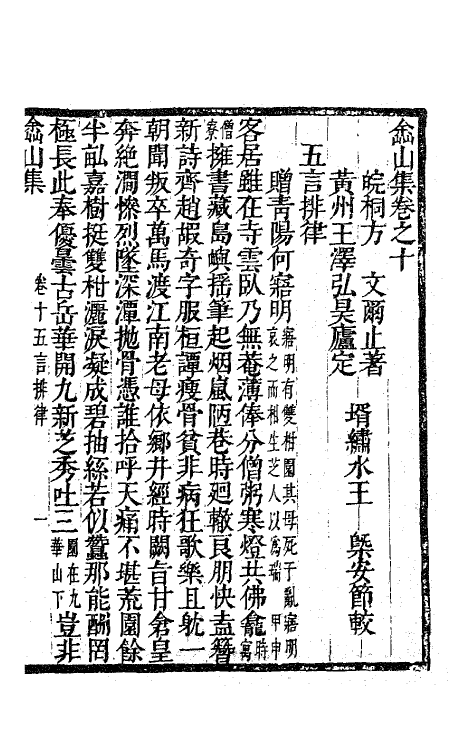 嵞山集卷之十
皖桐方 文爾止著
黃州王澤弘昊廬定
壻繡水王 槩安節較
五言排律
贈青陽何寤明 寤明有雙柑園其母死于亂寤明哀之而柑生芝人以為瑞 甲申
客居雖在寺雲臥乃無菴薄俸分僧粥寒燈共佛龕時寓
僧寮擁書藏島嶼揺筆起烟嵐陋巷時廻轍良朋快盍簪
新詩齊趙嘏奇字服桓譚瘦骨貧非病狂歌樂且躭一
朝聞叛卒萬馬渡江南老母依鄉井經時闕旨甘倉皇
奔絶澗慘烈墜深潭抛骨憑誰拾呼天痛不堪荒園餘
半畝嘉樹挺雙柑灑淚凝成碧抽絲若似蠶那能酬罔
極長此奉優曇古岳華開九新芝秀吐三園在九華山下豈非
嵞山集 卷十五言排律 一